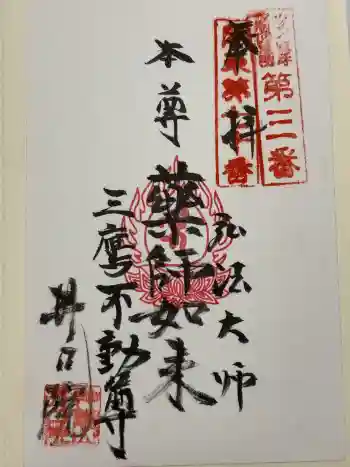 奉拝
第三番
弘法大師
本尊
薬師如来
三鷹不動尊
井口院